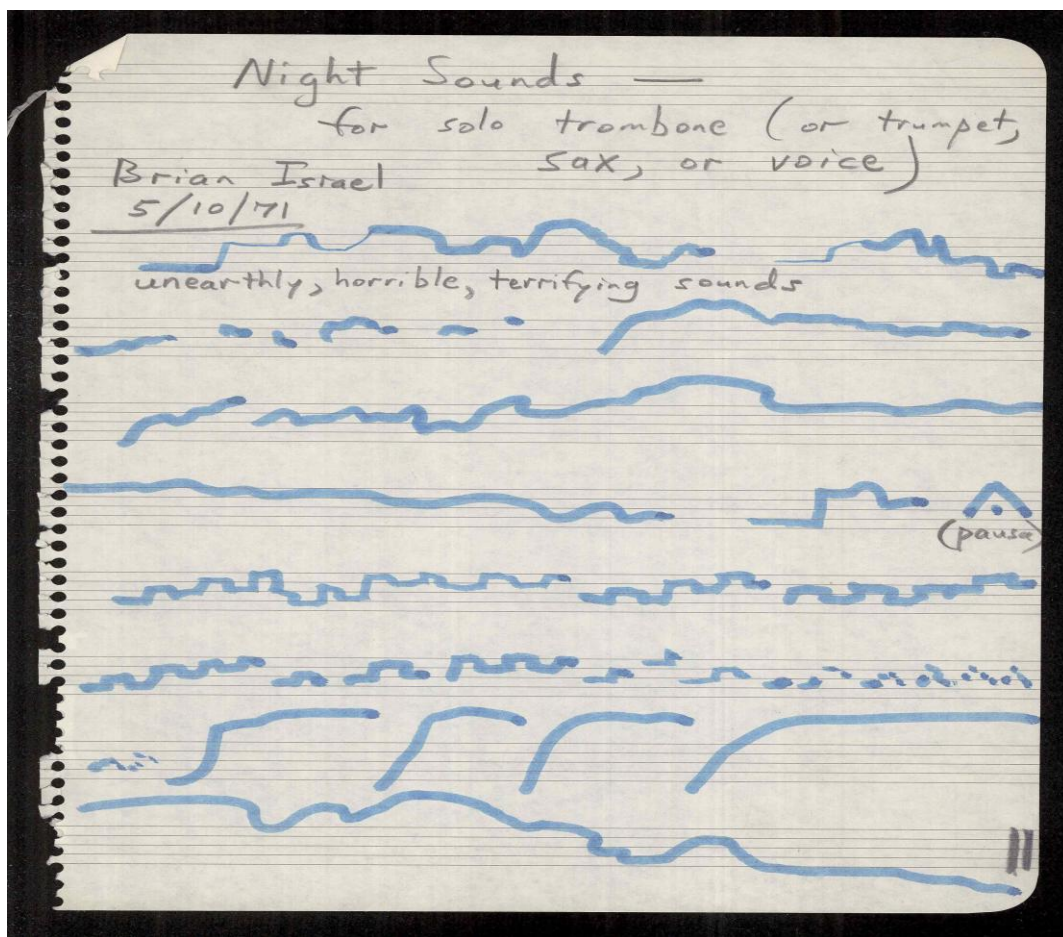 Night Sounds —
for solo trombone (or trumpet,
sax, or voice)
Brian Israel
5/10/71
unearthly, horrible, terrifying sounds
(pausa)